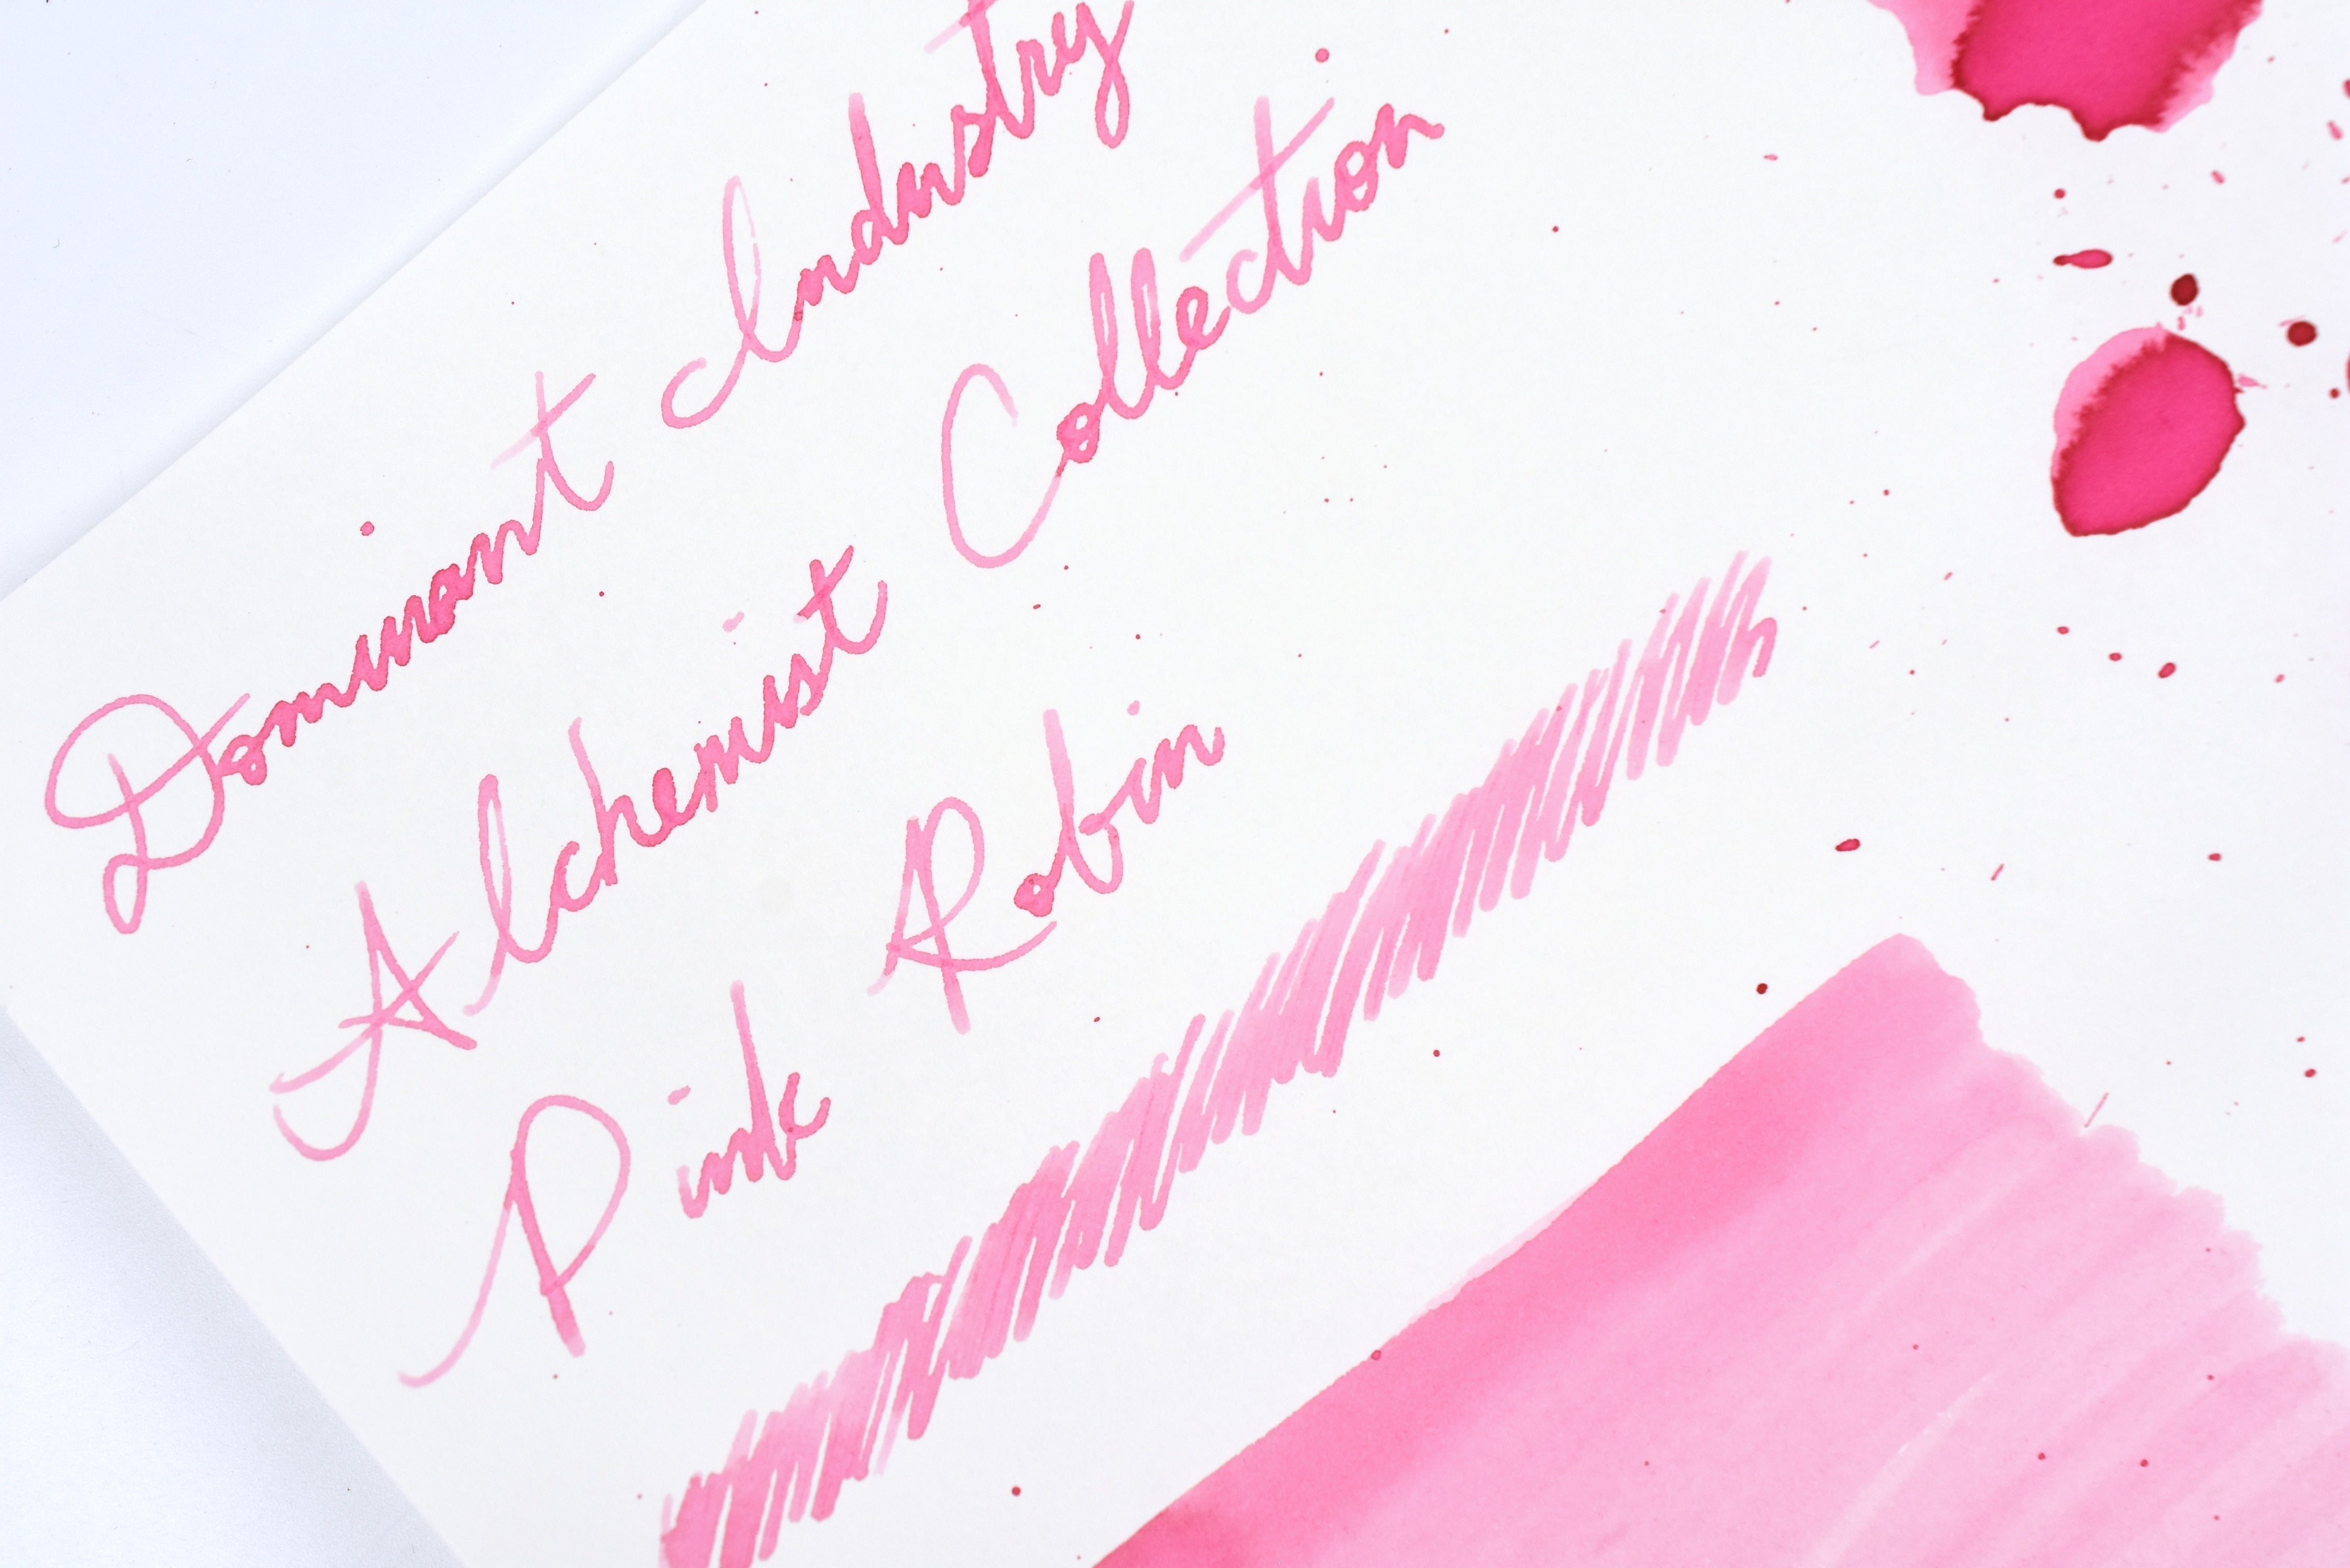 Dominant Industry
Alchemist Collection
Pink Robin